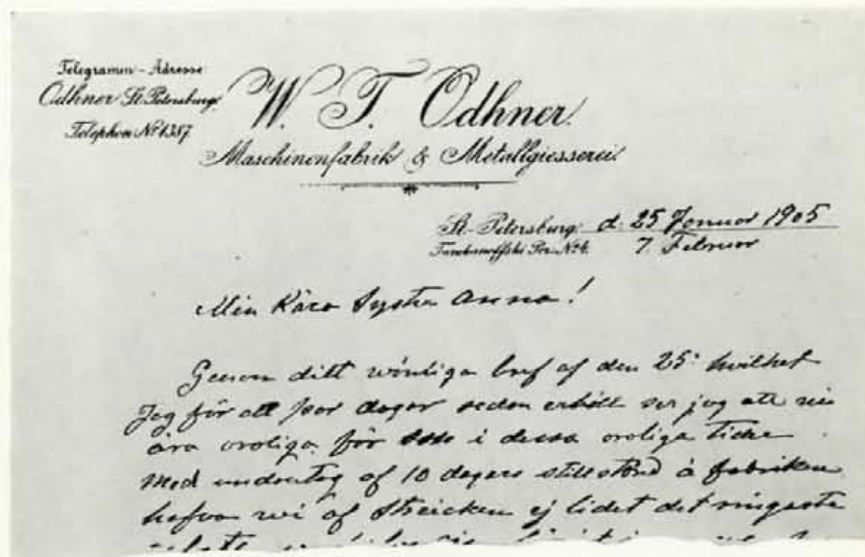 Telegramm-Adresse:
Odhner St. Petersburg.
Telephon № 6387.
W. T. Odhner.
Maschinenfabrik & Metallgiesserei.
St. Petersburg. d. 25 Januar 1905
7. Februar
Min Kära Syster Anna!
Genom ditt vönliga bref af den 25: hvilket
Jag för ett par dagar sedan erhöll ser jag att ni
ära oroliga för oss i dessa oroliga tider
Med undantag af 10 dagars stillestånd å fabriken
hafva vi af Streicken ej lidet det ringaste